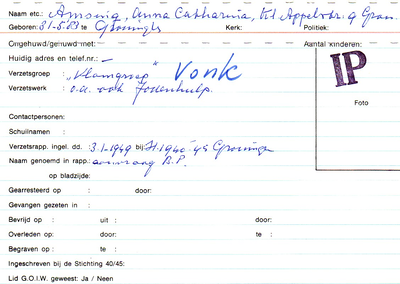 Naam etc.: Amsing, Anna Catharina,
Geboren: 31-5-83 te Groningen Kerk: Politiek:
Ongehuwd/gehuwd met: Aantal kinderen:
Huidig adres en telef.nr.: -
Verzetsgroep : "Klamgroep" Vonk
IP
Verzetswerk : o.a. ook Jodenhulp.
Foto
Contactpersonen:
Schuilnaam :
Verzetsrapp. ingel. dd. 3-1-1949 bij: St. 1940-'45 Groningen
Naam genoemd in rapp.: aanvraag B.P.
op bladzijde:
Gearresteerd op : door:
Gevangen gezeten in :
Bevrijd op : uit : door:
Overleden op: door: te :
Begraven op : te :
Ingeschreven bij de Stichting 40/45:
Lid G.O.I.W. geweest: Ja / Neen